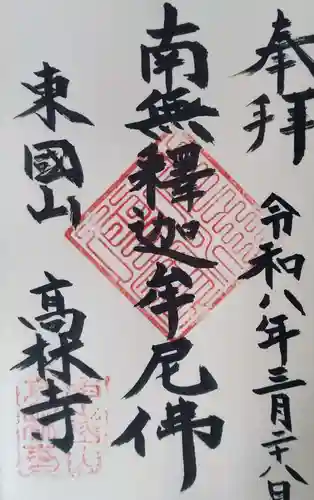 奉拝
令和八年三月二十八日
南無釋迦牟尼佛
東國山
高林寺